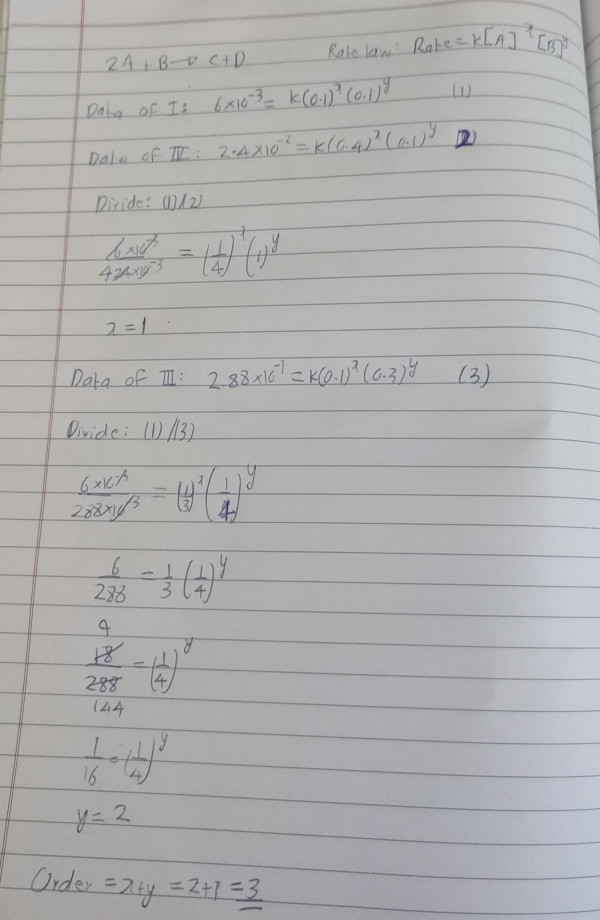 2A + B → C + D    Rate law: Rate = K[A]^x [B]^y
Data of I: 6×10^-3 = K(0.1)^x (0.1)^y    (1)
Data of IV: 2.4×10^-2 = K(0.4)^x (0.1)^y    (2)
Divide: (1)/(2)
6×10^-3 / 424×10^-3 = (1/4)^x (1)^y
x = 1
Data of III: 2.88×10^-1 = K(0.1)^x (0.3)^y    (3)
Divide: (1)/(3)
6×10^-3 / 288×10^-3 = (1/3)^x (1/4)^y
6/288 = 1/3 (1/4)^y
9
18/288 = (1/4)^y
144
1/16 = (1/4)^y
y = 2
Order = x+y = 2+1 = 3